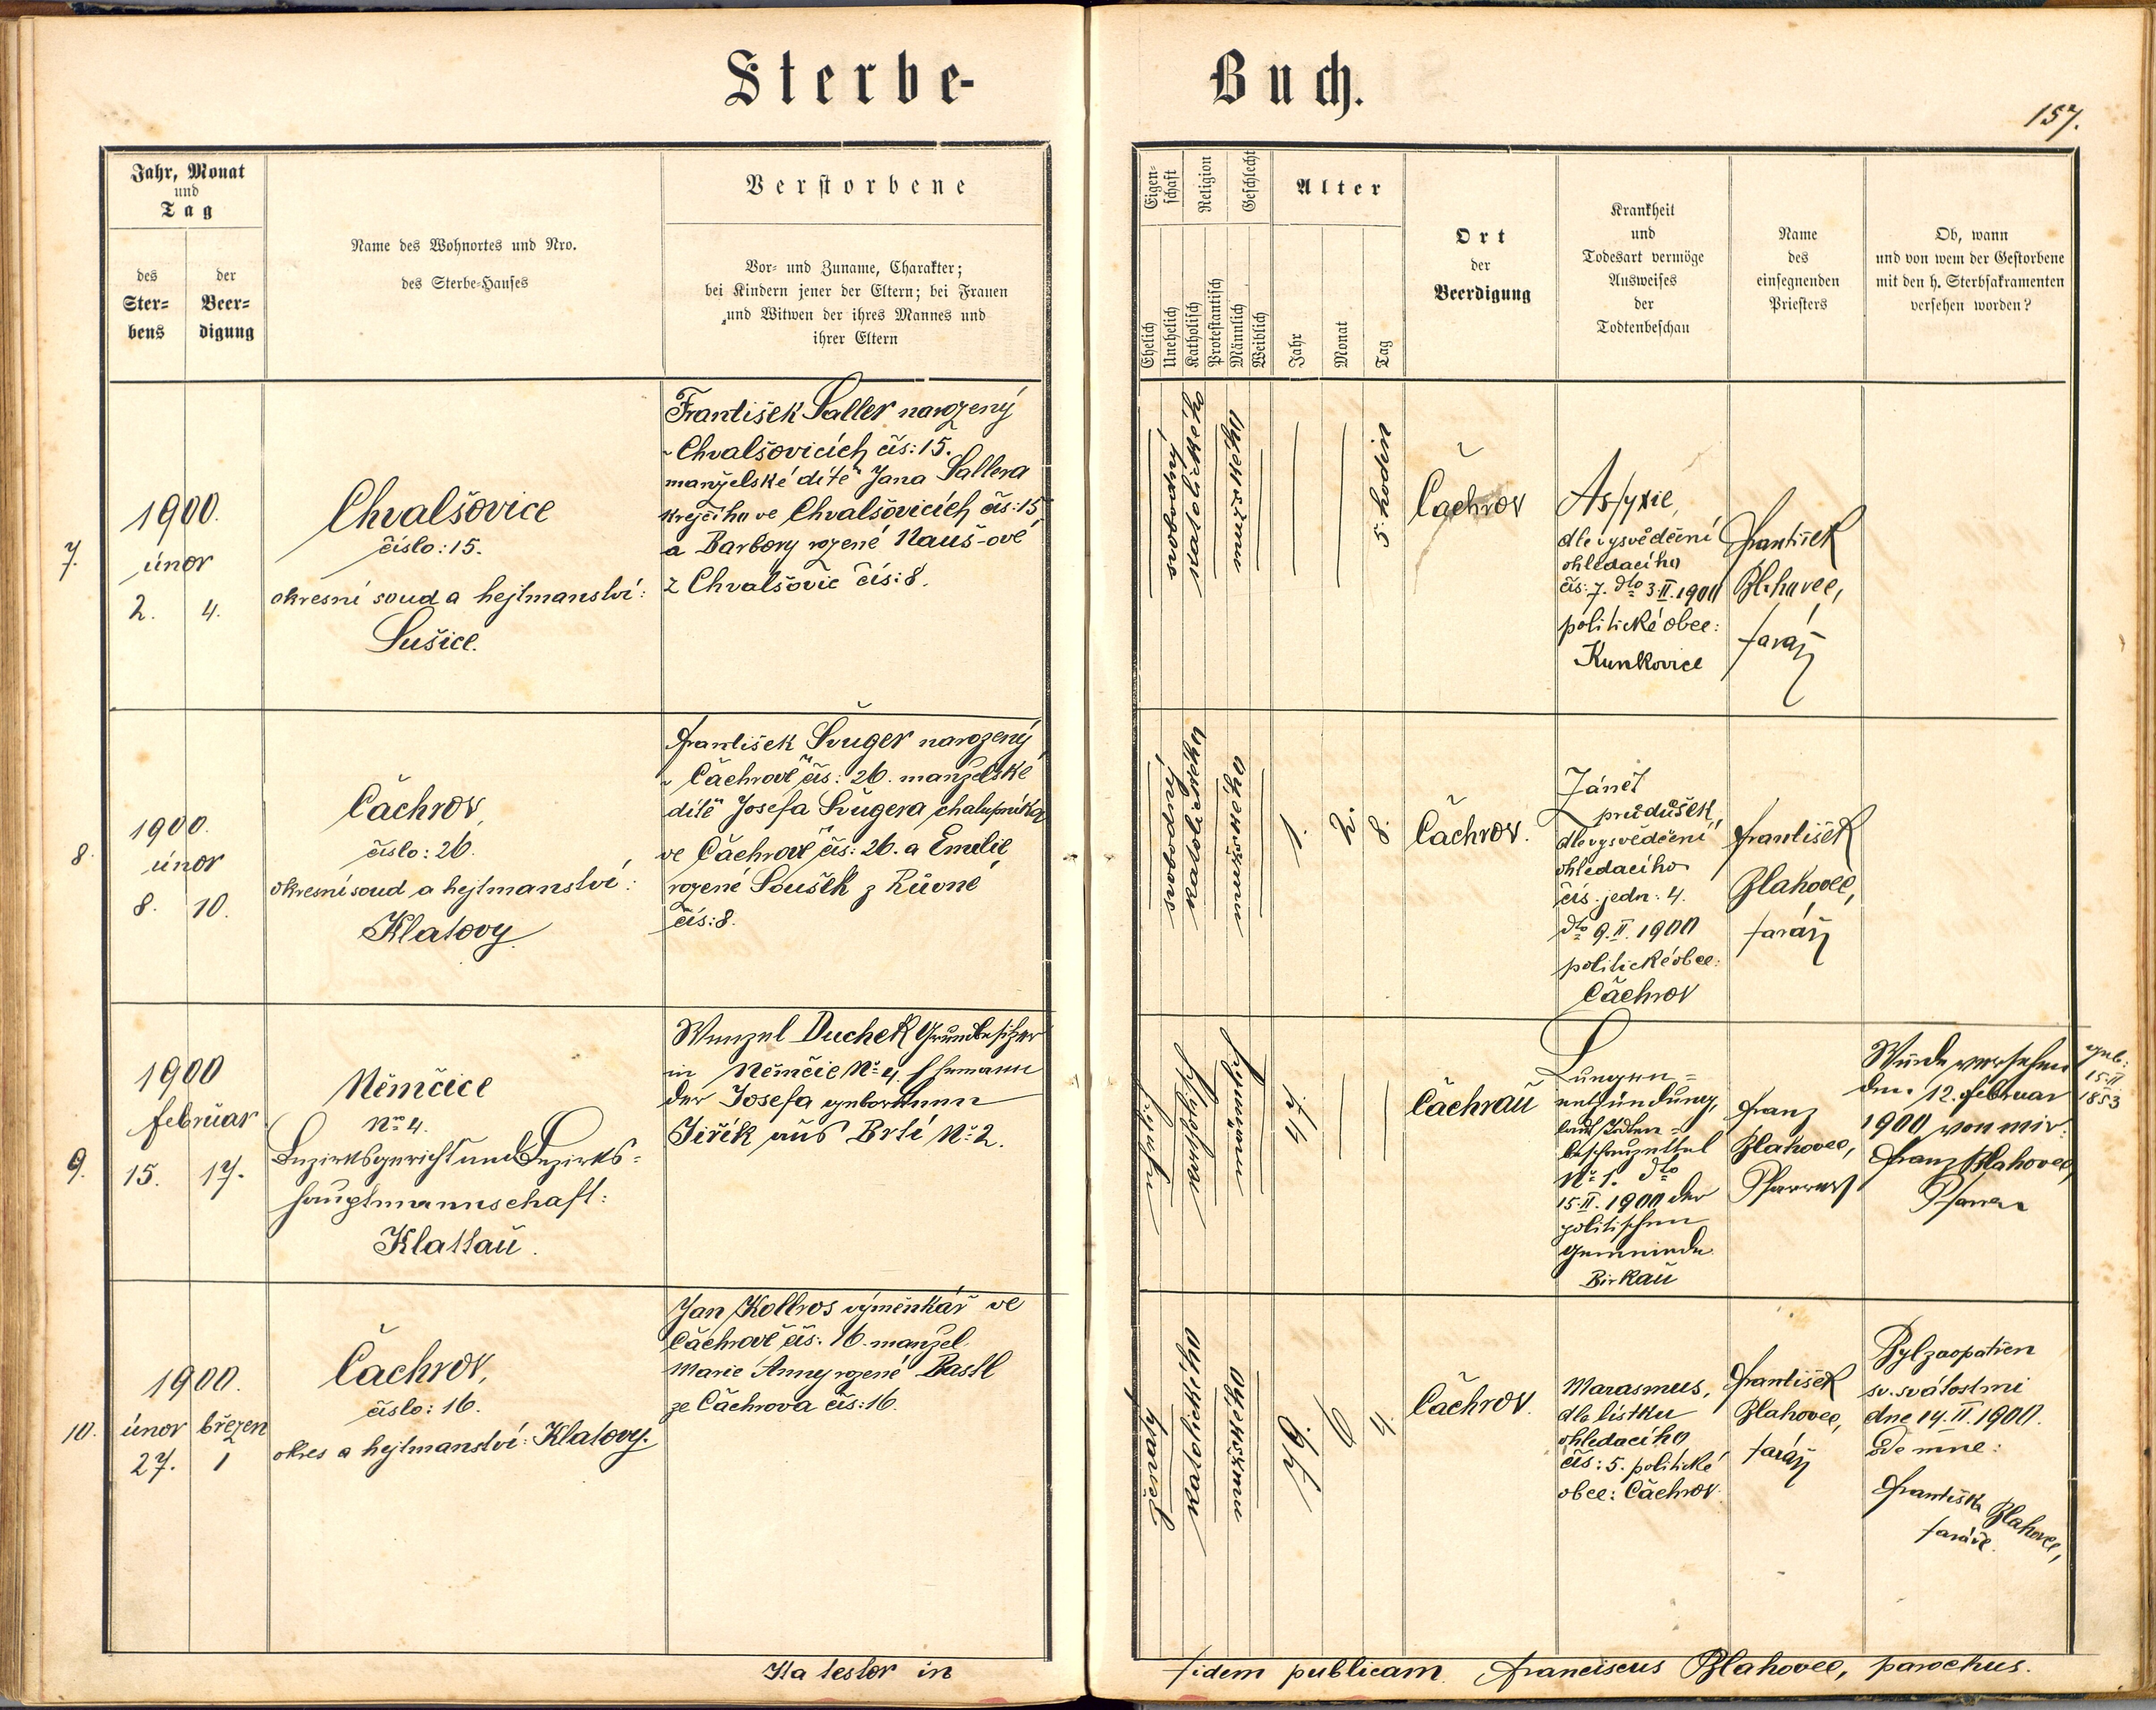 Sterbe-
Buch.
157.
Jahr, Monat
und
Tag
des
Ster=
bens
der
Beer=
digung
Name des Wohnortes und Nro.
des Sterbe-Hauses
Verstorbene
Vor- und Zuname, Charakter;
bei Kindern jener der Eltern; bei Frauen
und Witwen der ihres Mannes und
ihrer Eltern
Eigen-
schaft
Religion
Geschlecht
Ehelich
Unehelich
Katholisch
Protestantisch
Männlich
Weiblich
Alter
Jahr
Monat
Tag
Ort
der
Beerdigung
Krankheit
und
Todesart vermöge
Ausweises
der
Todtenbeschau
Name
des
einsegnenden
Priesters
Ob, wann
und von wem der Gestorbene
mit den h. Sterbsakramenten
versehen worden?
7.
1900.
únor
2. 4.
Chvalšovice
číslo: 15.
okresní soud a hejtmanství:
Sušice.
František Saller narozený
v Chvalšovicích čís: 15.
manželské dítě Jana Sallera
krejčího ve Chvalšovicích čís: 15
a Barbory rozené Nauš-ové
z Chvalšovic čís: 8.
svobodný
katolického
mužského
5 hodin
Čachrov
Asfyxie,
dle vysvědčení
ohledacího
čís: 7. dto 3.II.1900
politické obce:
Kunkovice
František
Blahovec,
farář
8.
1900.
únor
8. 10.
Čachrov,
číslo: 26.
okresní soud a hejtmanství:
Klatovy.
František Švuger narozený
v Čachrově čís: 26. manželské
dítě Josefa Švugera, chalupníka
ve Čachrově čís: 26. a Emilie
rozené Soušek z Růvné
čís: 8.
svobodný
katolického
mužského
1. 2. 8.
Čachrov.
Zánět
průdušek,
dle vysvědčení
ohledacího
čís. jedn: 4.
dto 9.II.1900
politické obce:
Čachrov
František
Blahovec,
farář
9.
1900
februar
15. 17.
Němčice
No 4.
Bezirksgericht und Bezirks=
hauptmannschaft:
Klattau.
Wenzel Duchek Grundbesitzer
in Němčic No 4. Ehemann
der Josefa geborenen
Jiřík aus Brtí No 2.
ehelich
katholisch
männlich
47.
Čachrau
Lungen=
entzündung,
laut Todten=
beschauzettel
No 1. dto
15.II.1900 der
politischen
Gemeinde
Birkau
Franz
Blahovec,
Pfarrer
Wurde versehen
den 12. februar
1900 von mir:
Franz Blahovec,
Pfarrer
geb:
15.II
1853
10.
1900.
únor březen
27. 1
Čachrov,
číslo: 16.
okres a hejtmanství: Klatovy.
Jan Kollros výměnkář ve
Čachrově čís: 16. manžel
Marie Anny rozené Bastl
ze Čachrova čís: 16.
ženatý
katolického
mužského
79. 6 4.
Čachrov.
Marasmus,
dle lístku
ohledacího
čís: 5. politické
obce: Čachrov.
František
Blahovec,
farář
Byl zaopatřen
sv. svátostmi
dne 14.II.1900.
ode mne:
Františka Blahovec,
faráře.
Ita testor in
fidem publicam. Franciscus Blahovec, parochus.